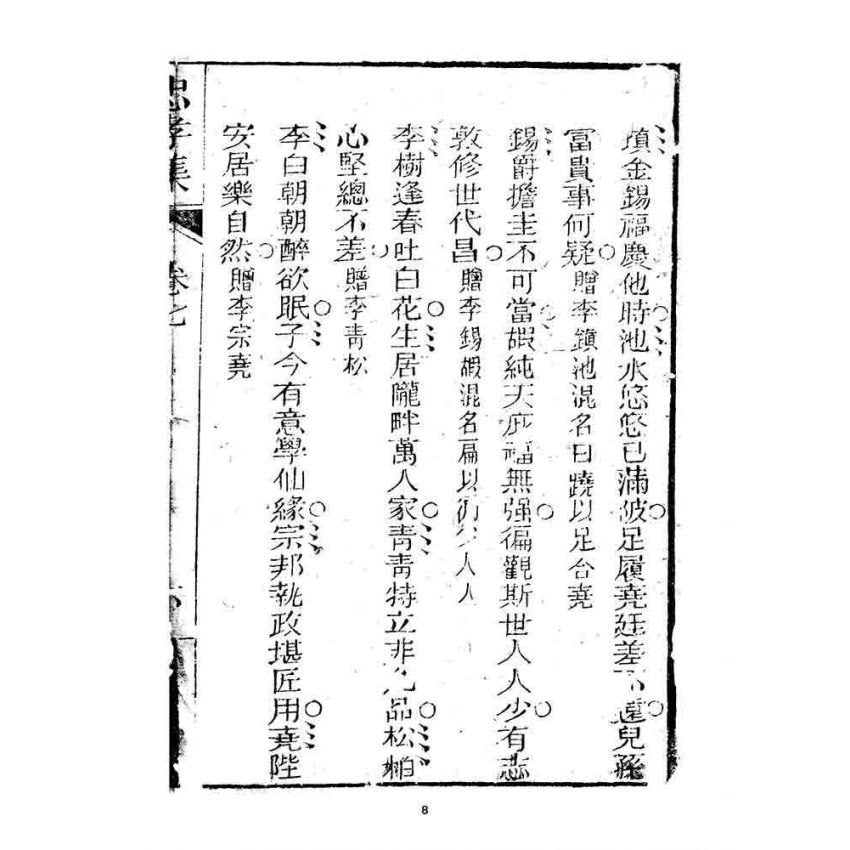 填金錫福慶他時池水悠悠已滿波足履堯廷差不遠兒孫
富貴事何疑贈李鎮池混名曰蹺以足合堯
錫爵擔圭不可當嘏純天庇福無強徧觀斯世人人少有志
敦修世代昌贈李錫嘏混名扁以 人人
李樹逢春吐白花生居隴畔萬人家青青特立非凡品松柏
心堅總不差贈李青松
李白朝朝醉欲眠子今有意學仙緣宗邦執政堪匠用堯陛
安居樂自然贈李宗堯
忠孝集 卷七
8